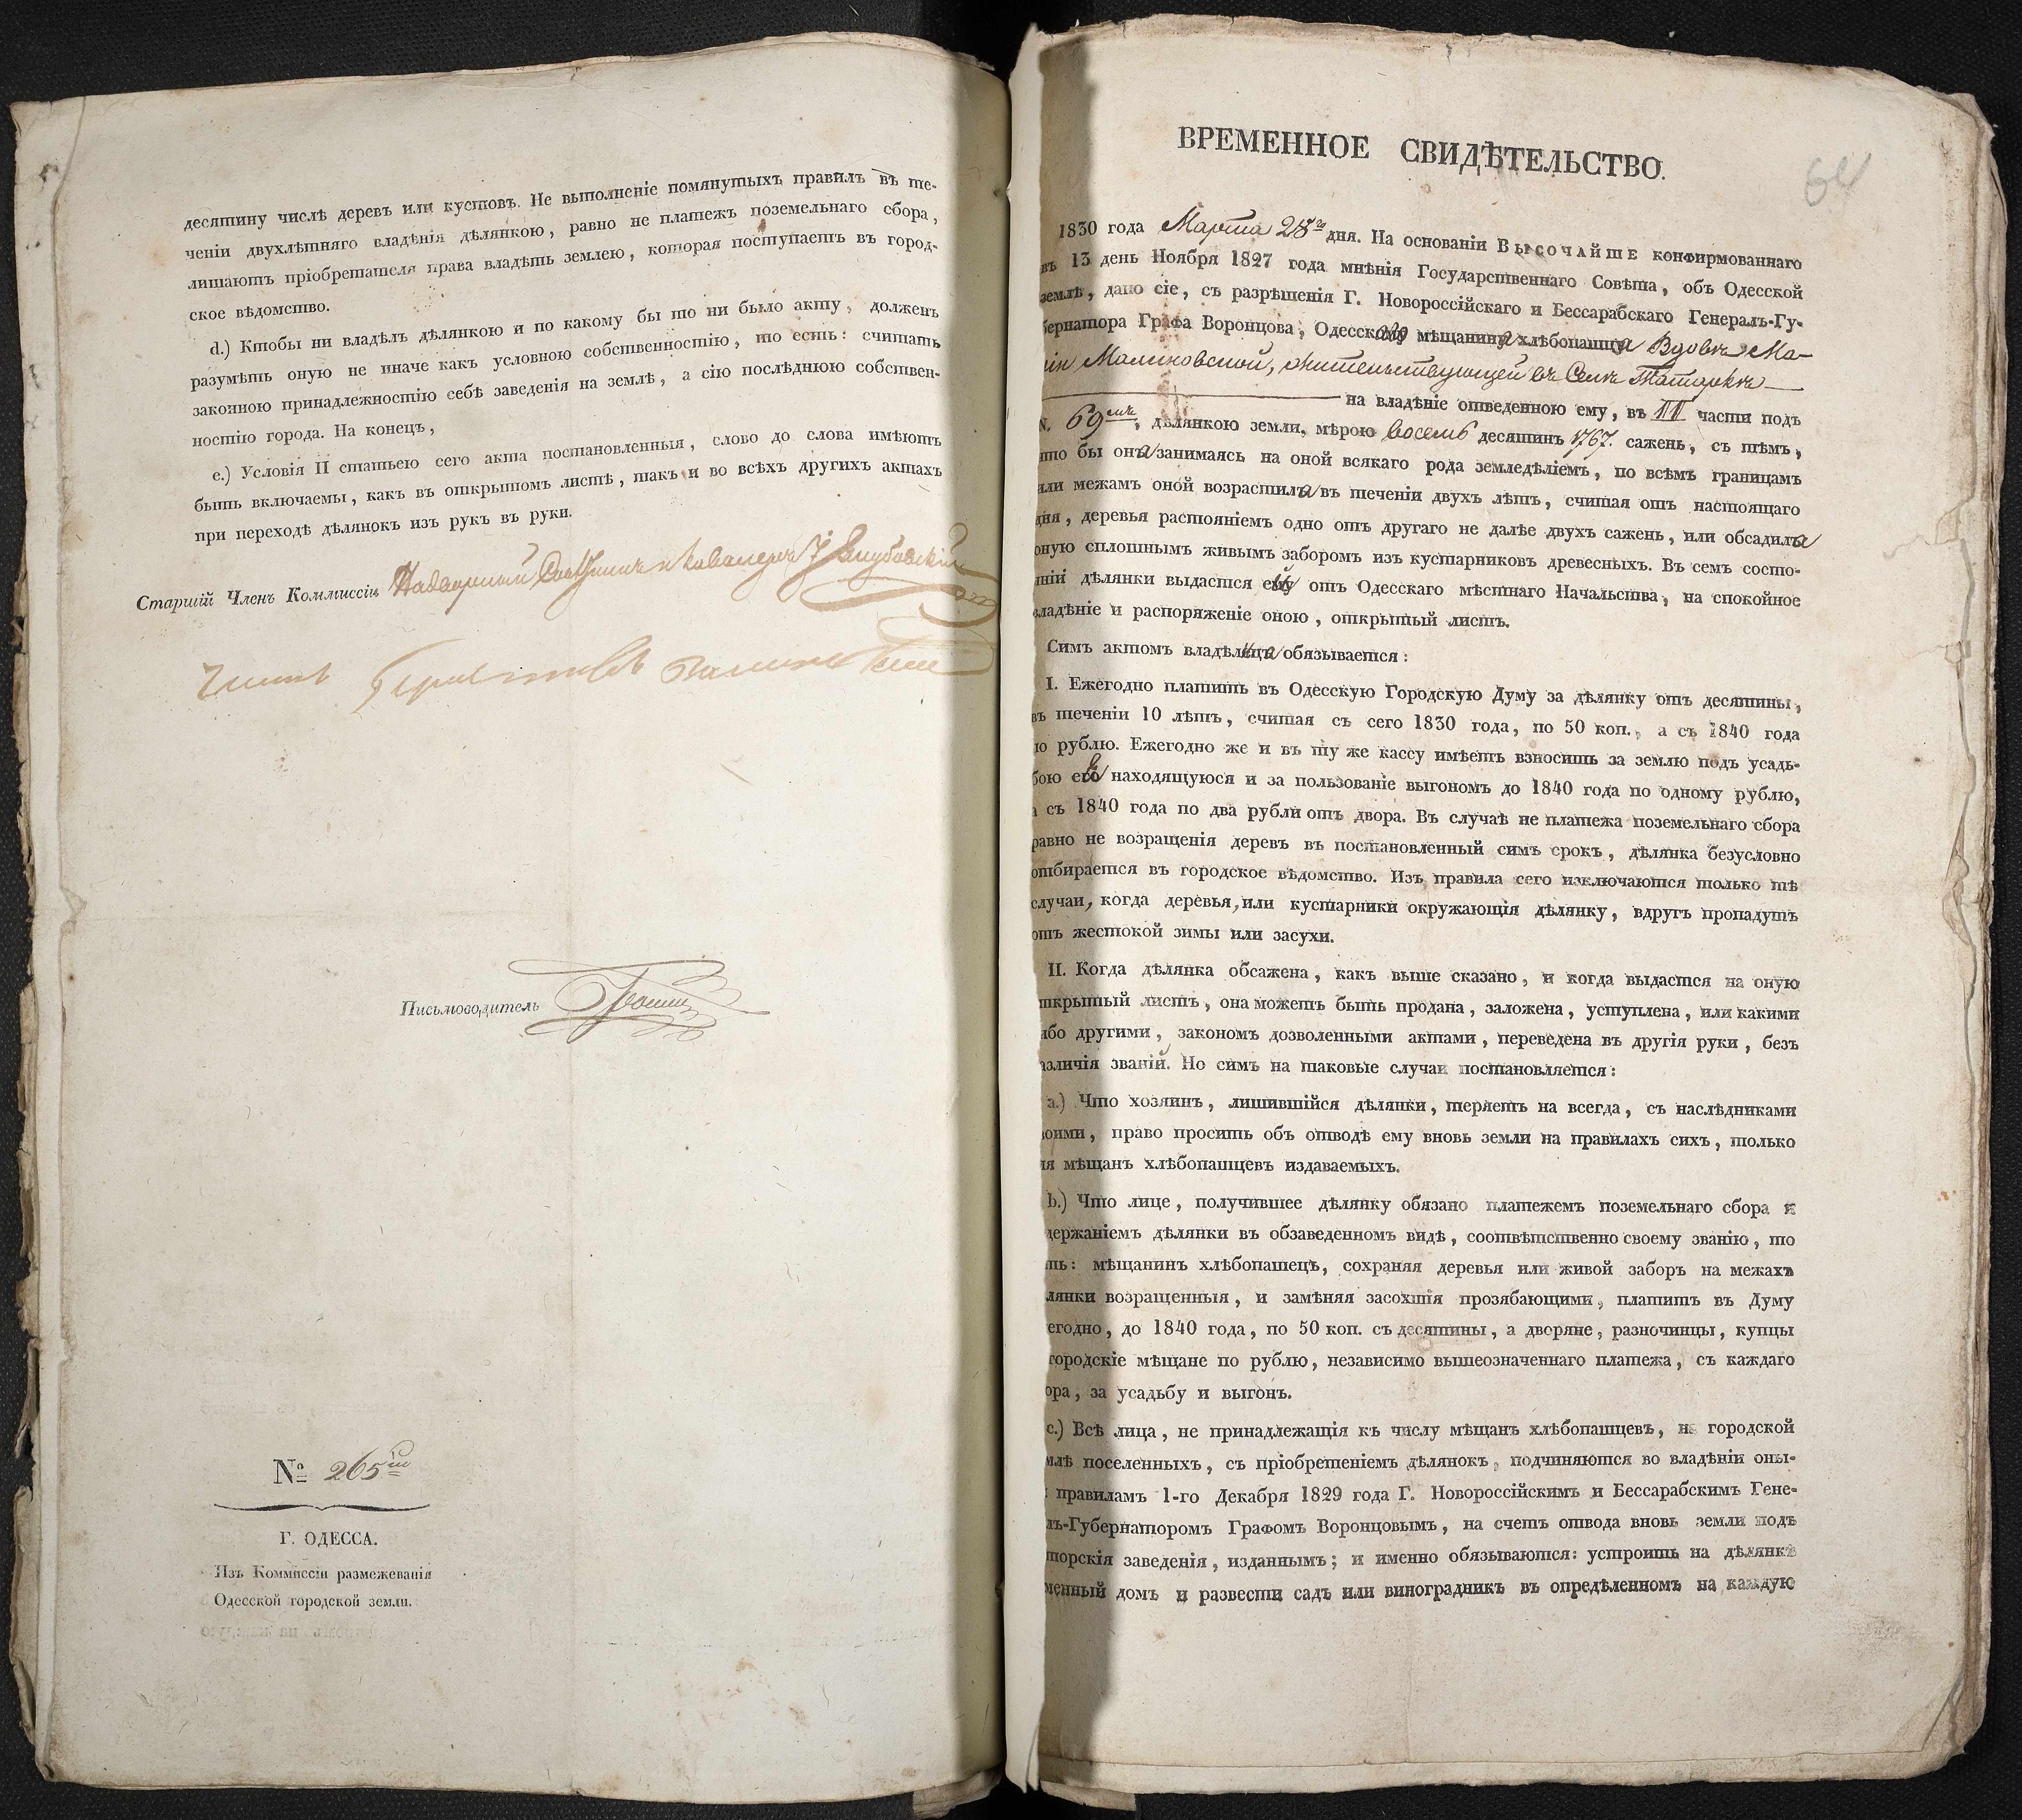 десятину числѣ деревъ или кустовъ. Не выполненіе помянутыхъ правилъ въ те-
ченіи двухлѣтняго владѣнія дѣлянкою, равно не платежъ поземельнаго сбора,
лишаютъ пріобретателя права владѣть землею, которая поступаетъ въ город-
ское вѣдомство.
d.) Ктобы ни владѣлъ дѣлянкою и по какому бы то ни было акту, долженъ
разумѣть оную не иначе какъ условною собственностію, то есть: считать
законною принадлежностію себѣ заведенія на землѣ, а сію послѣднюю собствен-
ностію города. На конецъ,
e.) Условія II статьею сего акта постановленныя, слово до слова имѣютъ
быть включаемы, какъ въ открытомъ листѣ, такъ и во всѣхъ другихъ актахъ
при переходѣ дѣлянокъ изъ рукъ въ руки.
Старшій Членъ Коммиссіи Надворный Совѣтникъ и Кавалеръ
Членъ
Письмоводитель
№ 265
Г. ОДЕССА.
Изъ Коммиссіи размежеванія
Одесской городской земли.
ВРЕМЕННОЕ СВИДѢТЕЛЬСТВО.
64
1830 года Марта 28го дня. На основаніи ВЫСОЧАЙШЕ конфирмованнаго
въ 13 день Ноября 1827 года мнѣнія Государственнаго Совѣта, объ Одесской
землѣ, дано сіе, съ разрѣшенія Г. Новороссійскаго и Бессарабскаго Генералъ-Гу-
бернатора Графа Воронцова, Одесской мѣщанину хлѣбопашцу Вдовѣ Ма-
ріи Малиновской, жительствующей въ Селѣ Татаркѣ
на владѣніе отведенною ему, въ III части подъ
N. 69мъ, дѣлянкою земли, мѣрою восемь десятинъ 1767. сажень, съ тѣмъ,
что бы она занимаясь на оной всякаго рода земледѣліемъ, по всѣмъ границамъ
или межамъ оной возрастила въ теченіи двухъ лѣтъ, считая отъ настоящаго
дня, деревья растояніемъ одно отъ другаго не далѣе двухъ сажень, или обсадила
оную сплошнымъ живымъ заборомъ изъ кустарниковъ древесныхъ. Въ семъ состо-
яніи дѣлянки выдастся ей отъ Одесскаго мѣстнаго Начальства, на спокойное
владѣніе и распоряженіе оною, открытый листъ.
Симъ актомъ владѣлица обязывается:
I. Ежегодно платить въ Одесскую Городскую Думу за дѣлянку отъ десятины,
въ теченіи 10 лѣтъ, считая съ сего 1830 года, по 50 коп., а съ 1840 года
по рублю. Ежегодно же и въ ту же кассу имѣетъ взносить за землю подъ усадь-
бою ея находящуюся и за пользованіе выгономъ до 1840 года по одному рублю,
а съ 1840 года по два рубли отъ двора. Въ случаѣ не платежа поземельнаго сбора
равно не возращенія деревъ въ постановленный симъ срокъ, дѣлянка безусловно
отбирается въ городское вѣдомство. Изъ правила сего изключаются только тѣ
случаи, когда деревья, или кустарники окружающія дѣлянку, вдругъ пропадутъ
отъ жестокой зимы или засухи.
II. Когда дѣлянка обсажена, какъ выше сказано, и когда выдастся на оную
ткрытый листъ, она можетъ быть продана, заложена, уступлена, или какими
ибо другими, закономъ дозволенными актами, переведена въ другія руки, безъ
азличія званій. Но симъ на таковые случаи постановляется:
a.) Что хозяинъ, лишившійся дѣлянки, теряетъ на всегда, съ наслѣдниками
воими, право просить объ отводѣ ему вновь земли на правилахъ сихъ, только
ля мѣщанъ хлѣбопашцевъ издаваемыхъ.
b.) Что лице, получившее дѣлянку обязано платежемъ поземельнаго сбора и
держаніемъ дѣлянки въ обзаведенномъ видѣ, соотвѣтственно своему званію, то
ть: мѣщанинъ хлѣбопашецъ, сохраняя деревья или живой заборъ на межахъ
лянки возращенныя, и замѣняя засохшія прозябающими, платитъ въ Думу
егодно, до 1840 года, по 50 коп. съ десятины, а дворяне, разночинцы, купцы
городскіе мѣщане по рублю, независимо вышеозначеннаго платежа, съ каждаго
ора, за усадьбу и выгонъ.
c.) Всѣ лица, не принадлежащія къ числу мѣщанъ хлѣбопашцевъ, на городской
млѣ поселенныхъ, съ пріобретеніемъ дѣлянокъ, подчиняются во владѣніи оны-
правиламъ 1-го Декабря 1829 года Г. Новороссійскимъ и Бессарабскимъ Гене-
лъ-Губернаторомъ Графомъ Воронцовымъ, на счетъ отвода вновь земли подъ
торскія заведенія, изданнымъ; и именно обязываются: устроить на дѣлянкѣ
менный домъ и развести садъ или виноградникъ въ опредѣленномъ на каждую